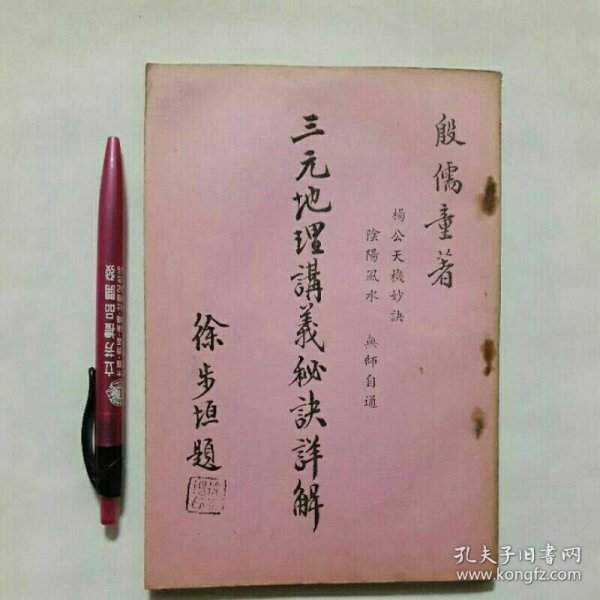 殷儒童著
楊公天機妙訣
陰陽風水 無師自通
三元地理講義秘訣詳解
徐步垣題
立芳禮品開發
孔夫子旧书网
www.kongfz.com